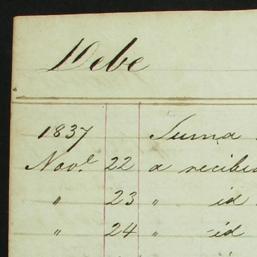 Debe
1837 Suma
Nov.e 22 a recibi
" 23 " id
" 24 " id